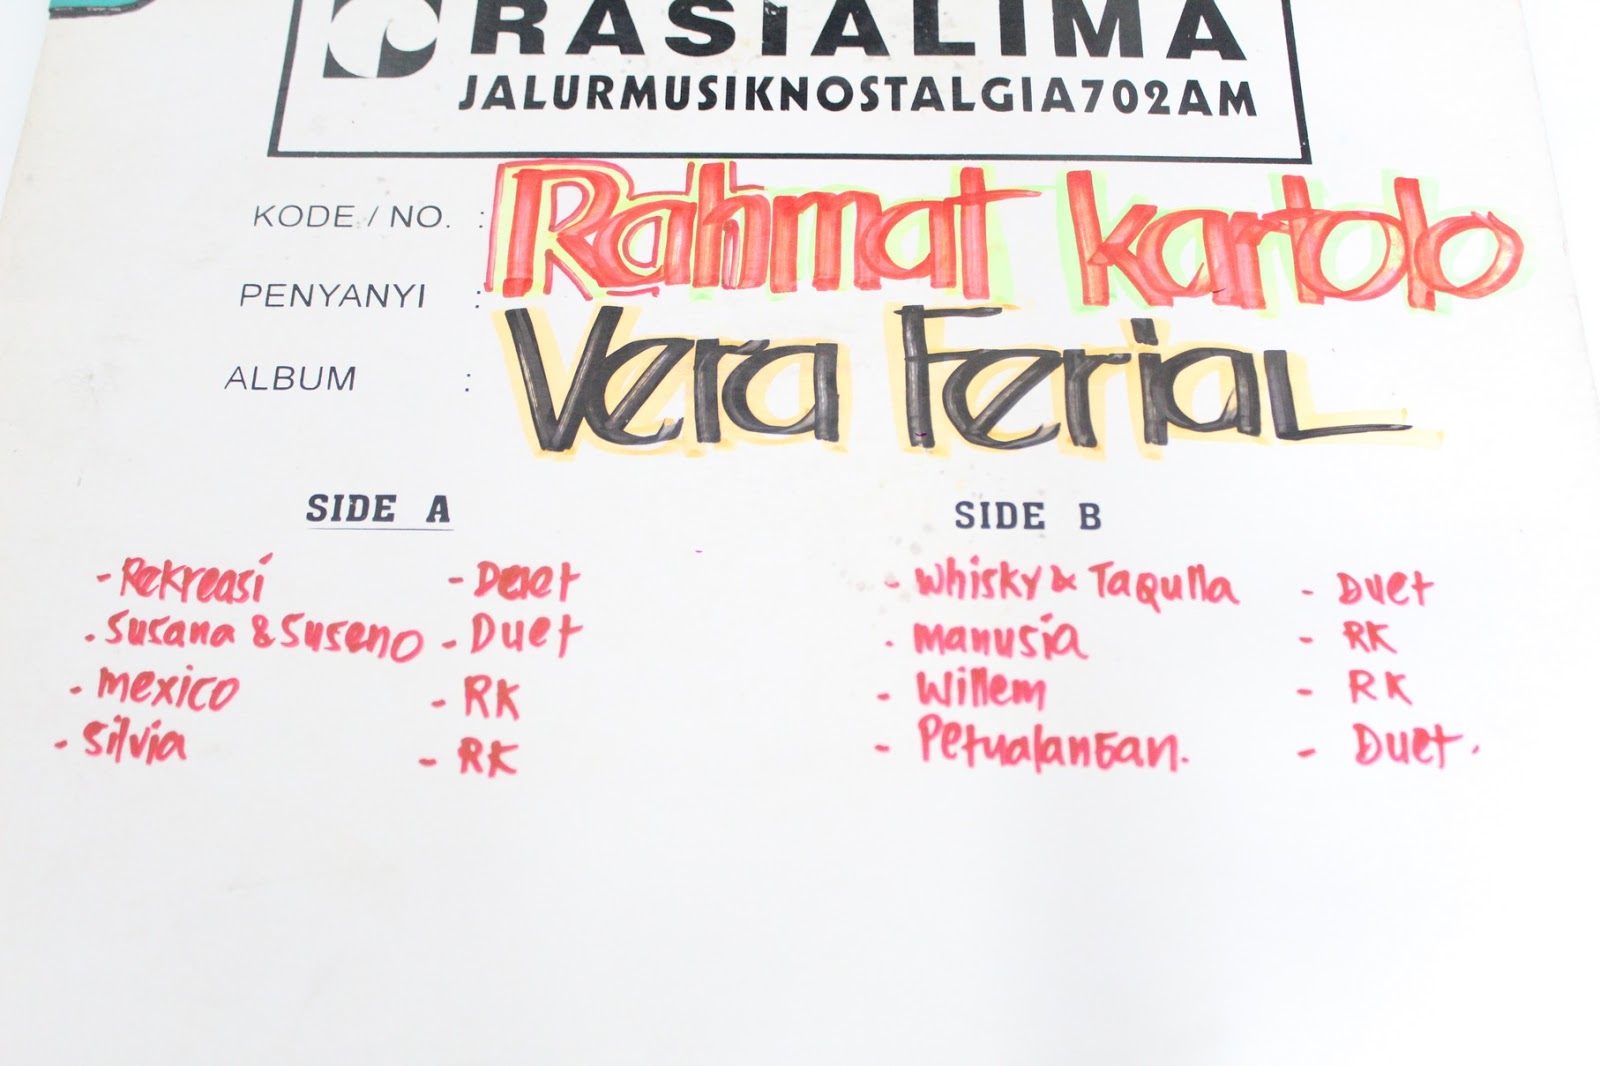 RASIALIMA
JALURMUSIKNOSTALGIA702AM
KODE / NO. : Rahmat Kartolo
PENYANYI :
ALBUM : Vera Ferial
SIDE A
- Rekreasi - Duet
- Susana & Suseno - Duet
- Mexico - RK
- Silvia - RK
SIDE B
- Whisky & Taqulla - Duet
- Manusia - RK
- Willem - RK
- Petualangan. - Duet.